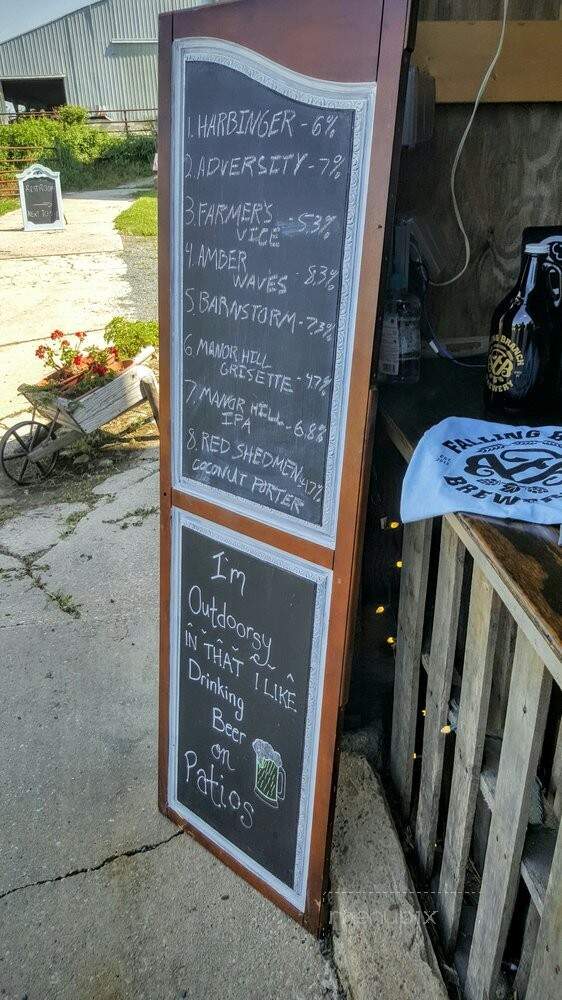 1. HARBINGER - 6%
2. ADVERSITY - 7%
3. FARMER'S
VICE - 5.3%
4. AMBER
WAVES - 8.3%
5. BARNSTORM - 7.3%
6. MANOR HILL
GRISETTE - 4.7%
7. MANOR HILL
IFA - 6.8%
8. RED SHEDMEN - 4.7%
COCONUT PORTER
I'm
Outdoorsy
IN THAT I LIKE
Drinking
Beer
on
Patios
RESTROOM
NEXT TO
FALLING
BREW
BRANCH
BREWERY
menupix